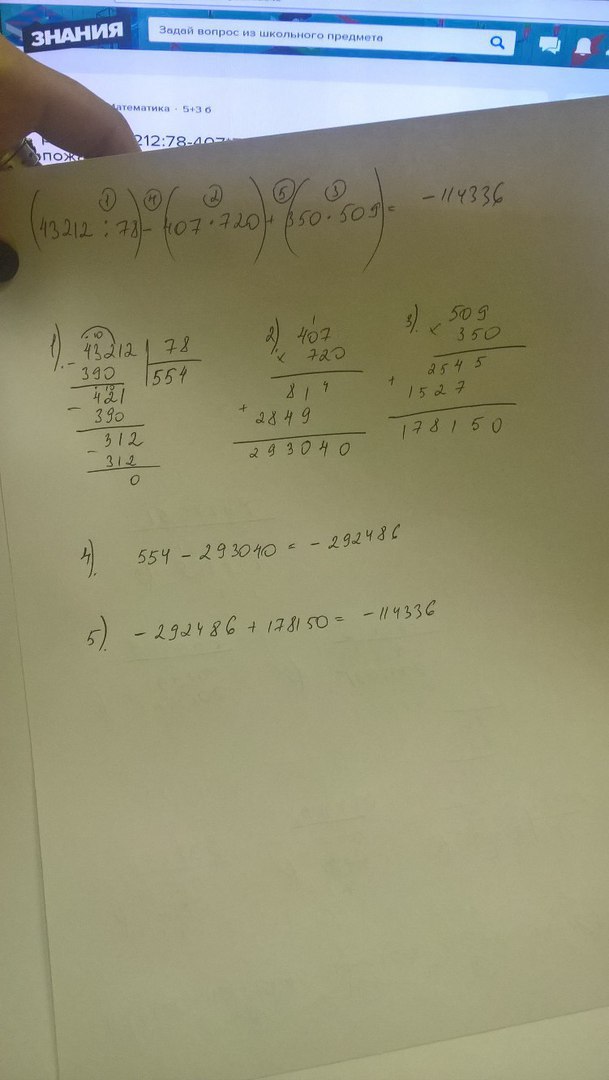 ЗНАНИЯ
Задай вопрос из школьного предмета
атематика · 5+3 б
212:78-407
(43212 : 78) - (407 · 720) + (350 · 509) = -114336
① ④ ② ⑤ ③
1).
43212 | 78
- 390 554
421
- 390
312
- 312
0
2) 407
× 720
814
+ 2849
293040
3). 509
× 350
2545
+ 1527
178150
4). 554 - 293040 = - 292486
5). - 292486 + 178150 = -114336